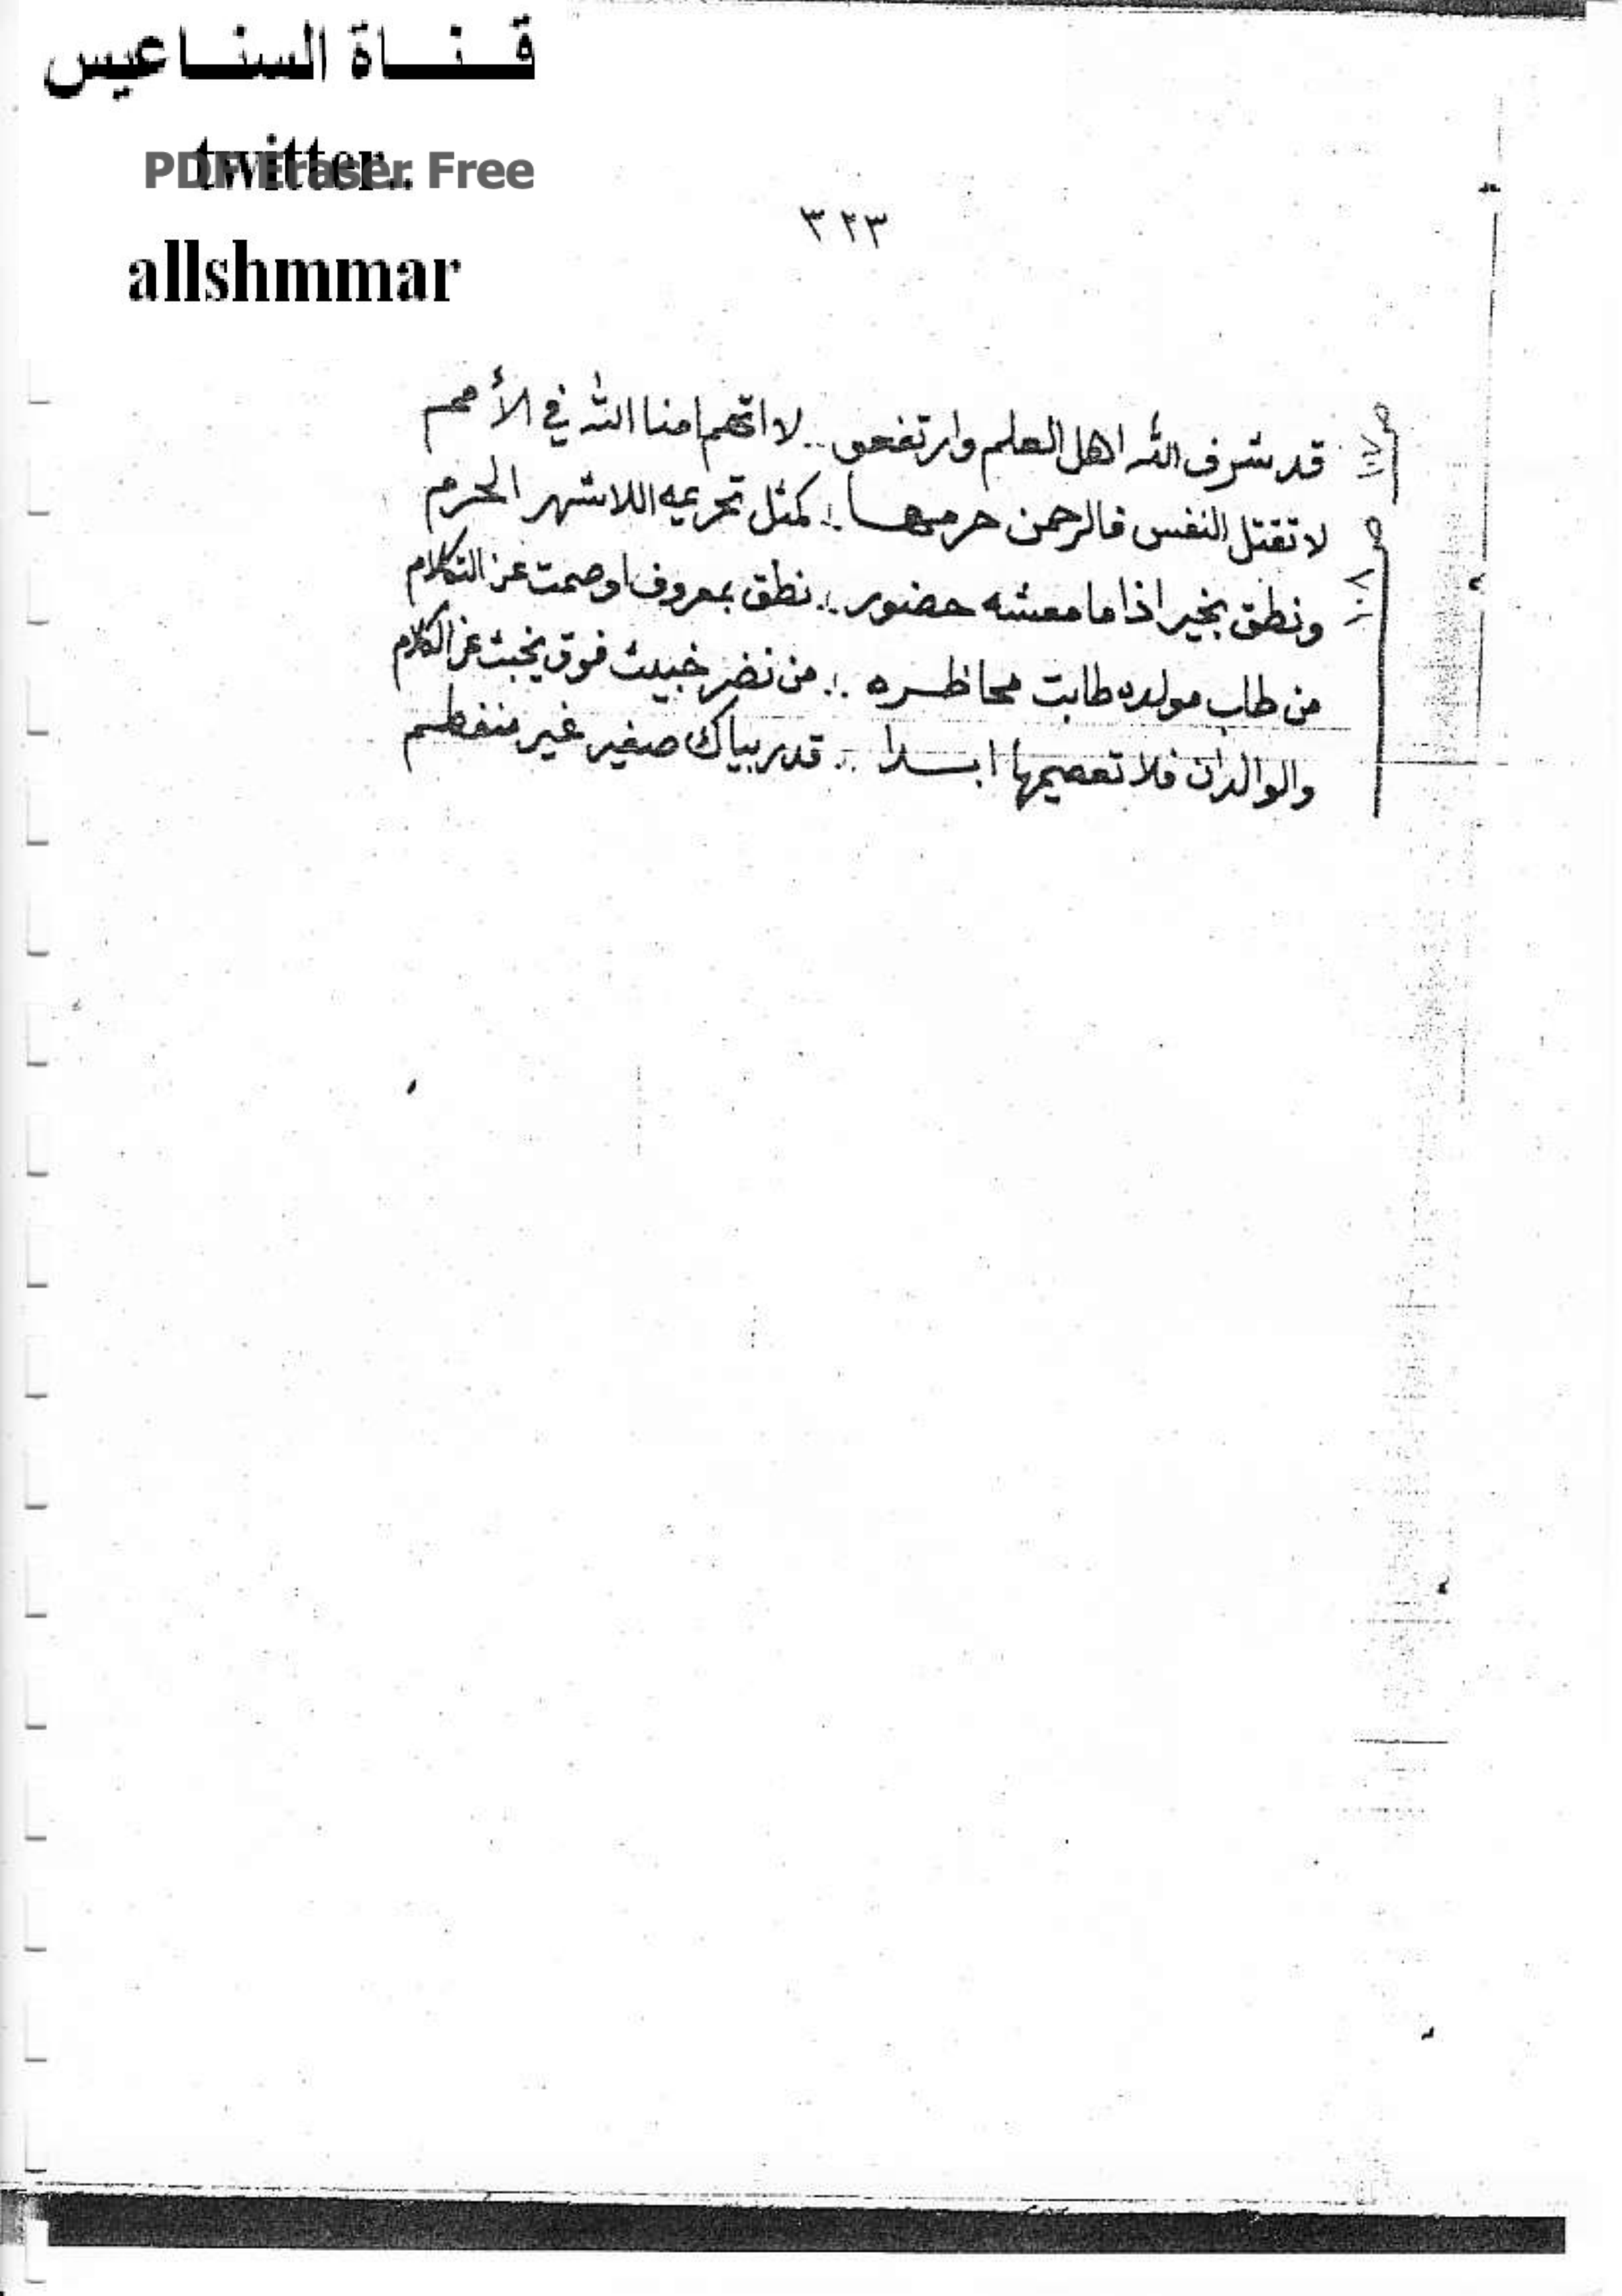 قناة السناعيس
twitter..
PDF Eraser Free
allshmmar
٣٢٣
قد شرف الله اهل العلم وارتفعو .. لا اتهم امنا الله في الأمم
لا تقتل النفس فالرحمن حرمها .. كمثل تحريمه اللاشهر الحرم
ونطق بخير اذا ما معشه حضور .. نطق بمعروف اوصمت عن التكلام
من طاب مولده طابت محاظره .. من نضر خبيث فوق يخبث عن الكلام
والوالدان فلا تعصيهما ابدا .. قد ربياك صغير غير منفطم